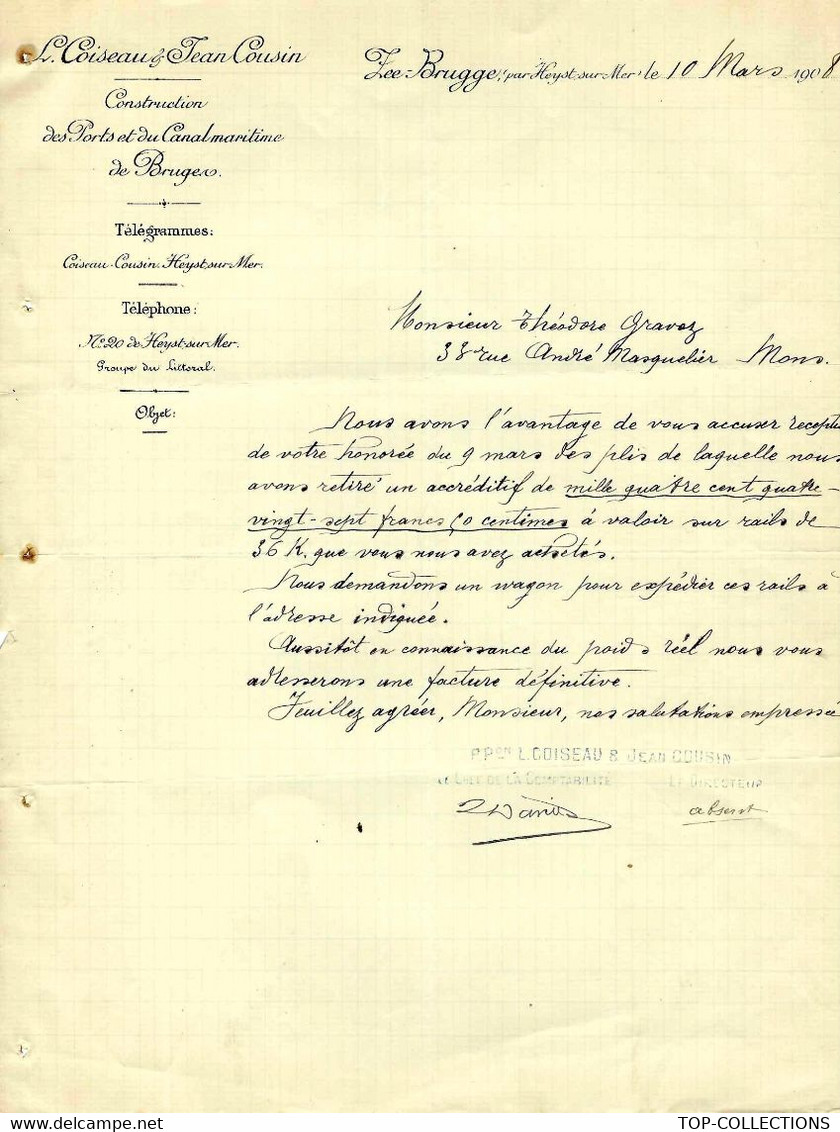 L. Coiseau & Jean Cousin
Construction
des Ports et du Canal maritime
de Bruges.
Télégrammes:
Coiseau-Cousin. Heyst-sur-Mer.
Téléphone:
No. 20 de Heyst-sur-Mer.
Groupe du Littoral.
Objet:
Zee-Brugge, (par Heyst-sur-Mer) le 10 Mars 1908
Monsieur Théodore Gravez
38 rue André Masquelier Mons.
Nous avons l'avantage de vous accuser recept
de votre honorée du 9 mars des plis de laquelle nous
avons retiré un accréditif de mille quatre cent quatre-
vingt-sept francs 50 centimes à valoir sur rails de
36 K. que vous nous avez achetés.
Nous demandons un wagon pour expédier ces rails à
l'adresse indiquée.
Aussitôt en connaissance du poids réel nous vous
adresserons une facture définitive.
Veuillez agréer, Monsieur, nos salutations empressé
PPON L. COISEAU & JEAN COUSIN
LE CHEF DE LA COMPTABILITÉ LE DIRECTEUR
absent
TOP-COLLECTIONS